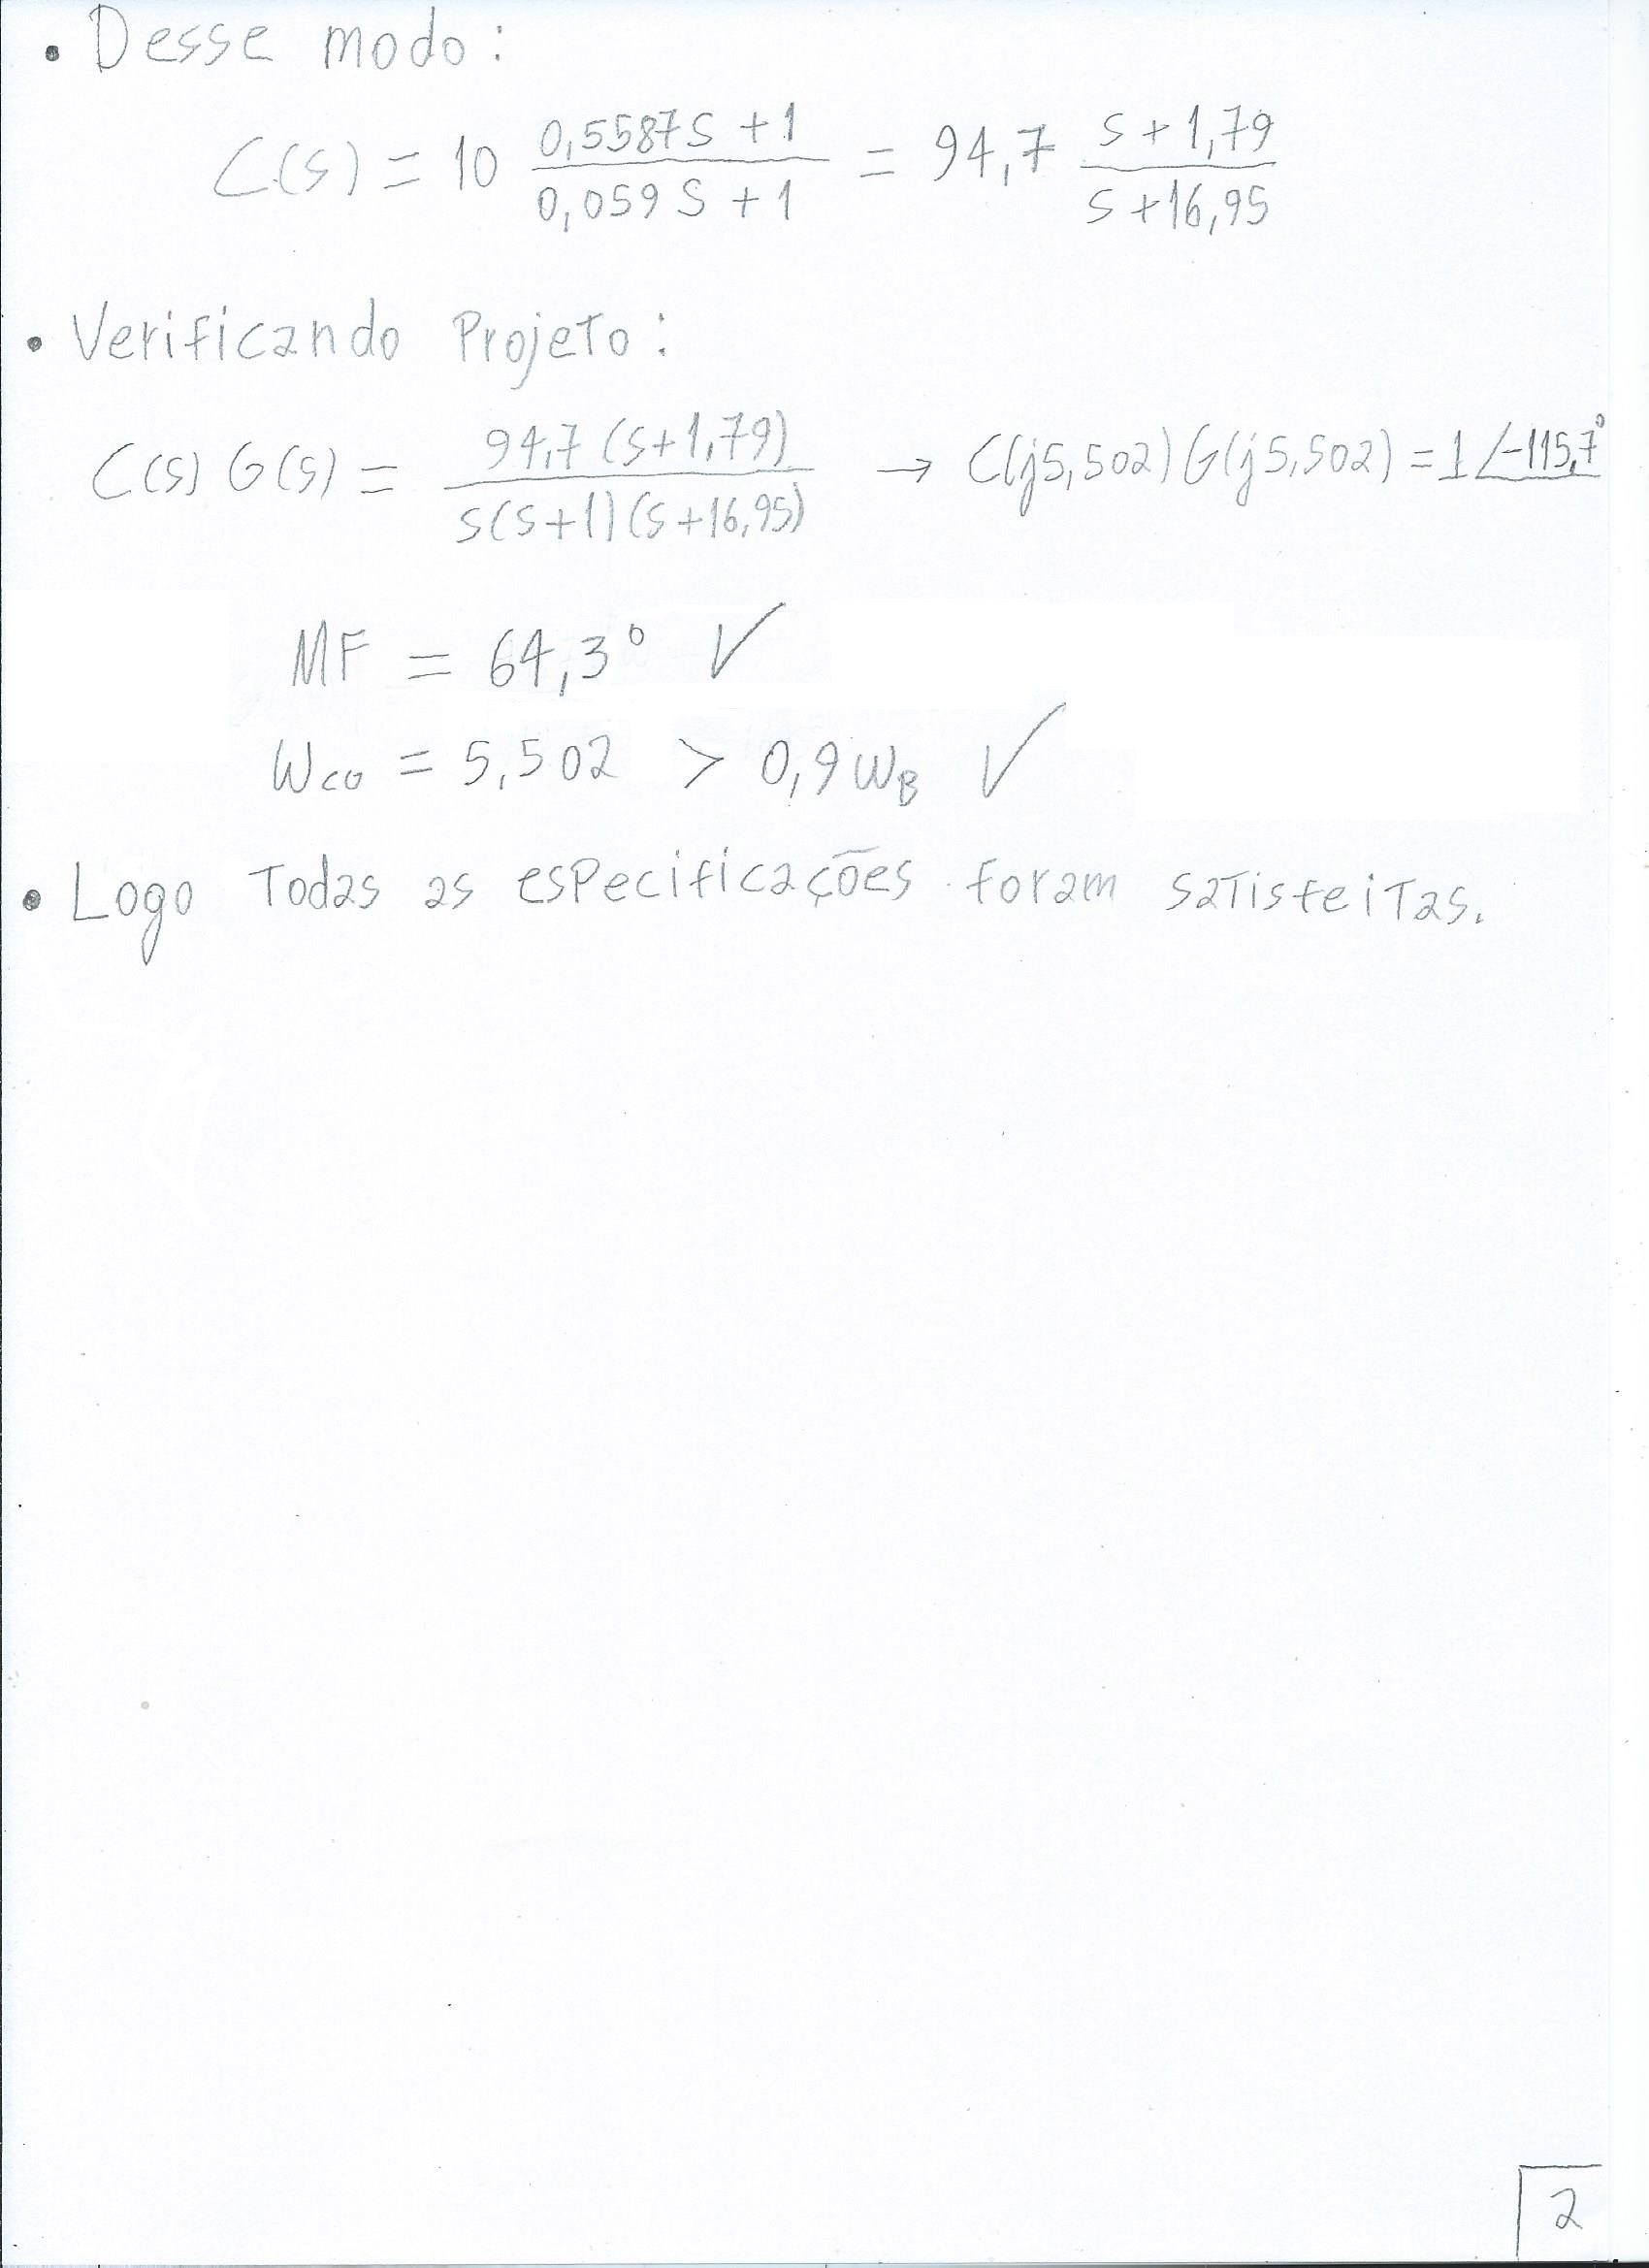 • Desse modo:
C(s) = 10 (0,5587s + 1)/(0,059s + 1) = 94,7 (s + 1,79)/(s + 16,95)
• Verificando Projeto:
C(s) G(s) = 94,7 (s + 1,79)/(s(s+1)(s+16,95)) → C(j5,502) G(j5,502) = 1 ∠-115,7°
MF = 64,3° ✓
Wco = 5,502 > 0,9 WB ✓
• Logo Todas as especificações foram satisfeitas.
2